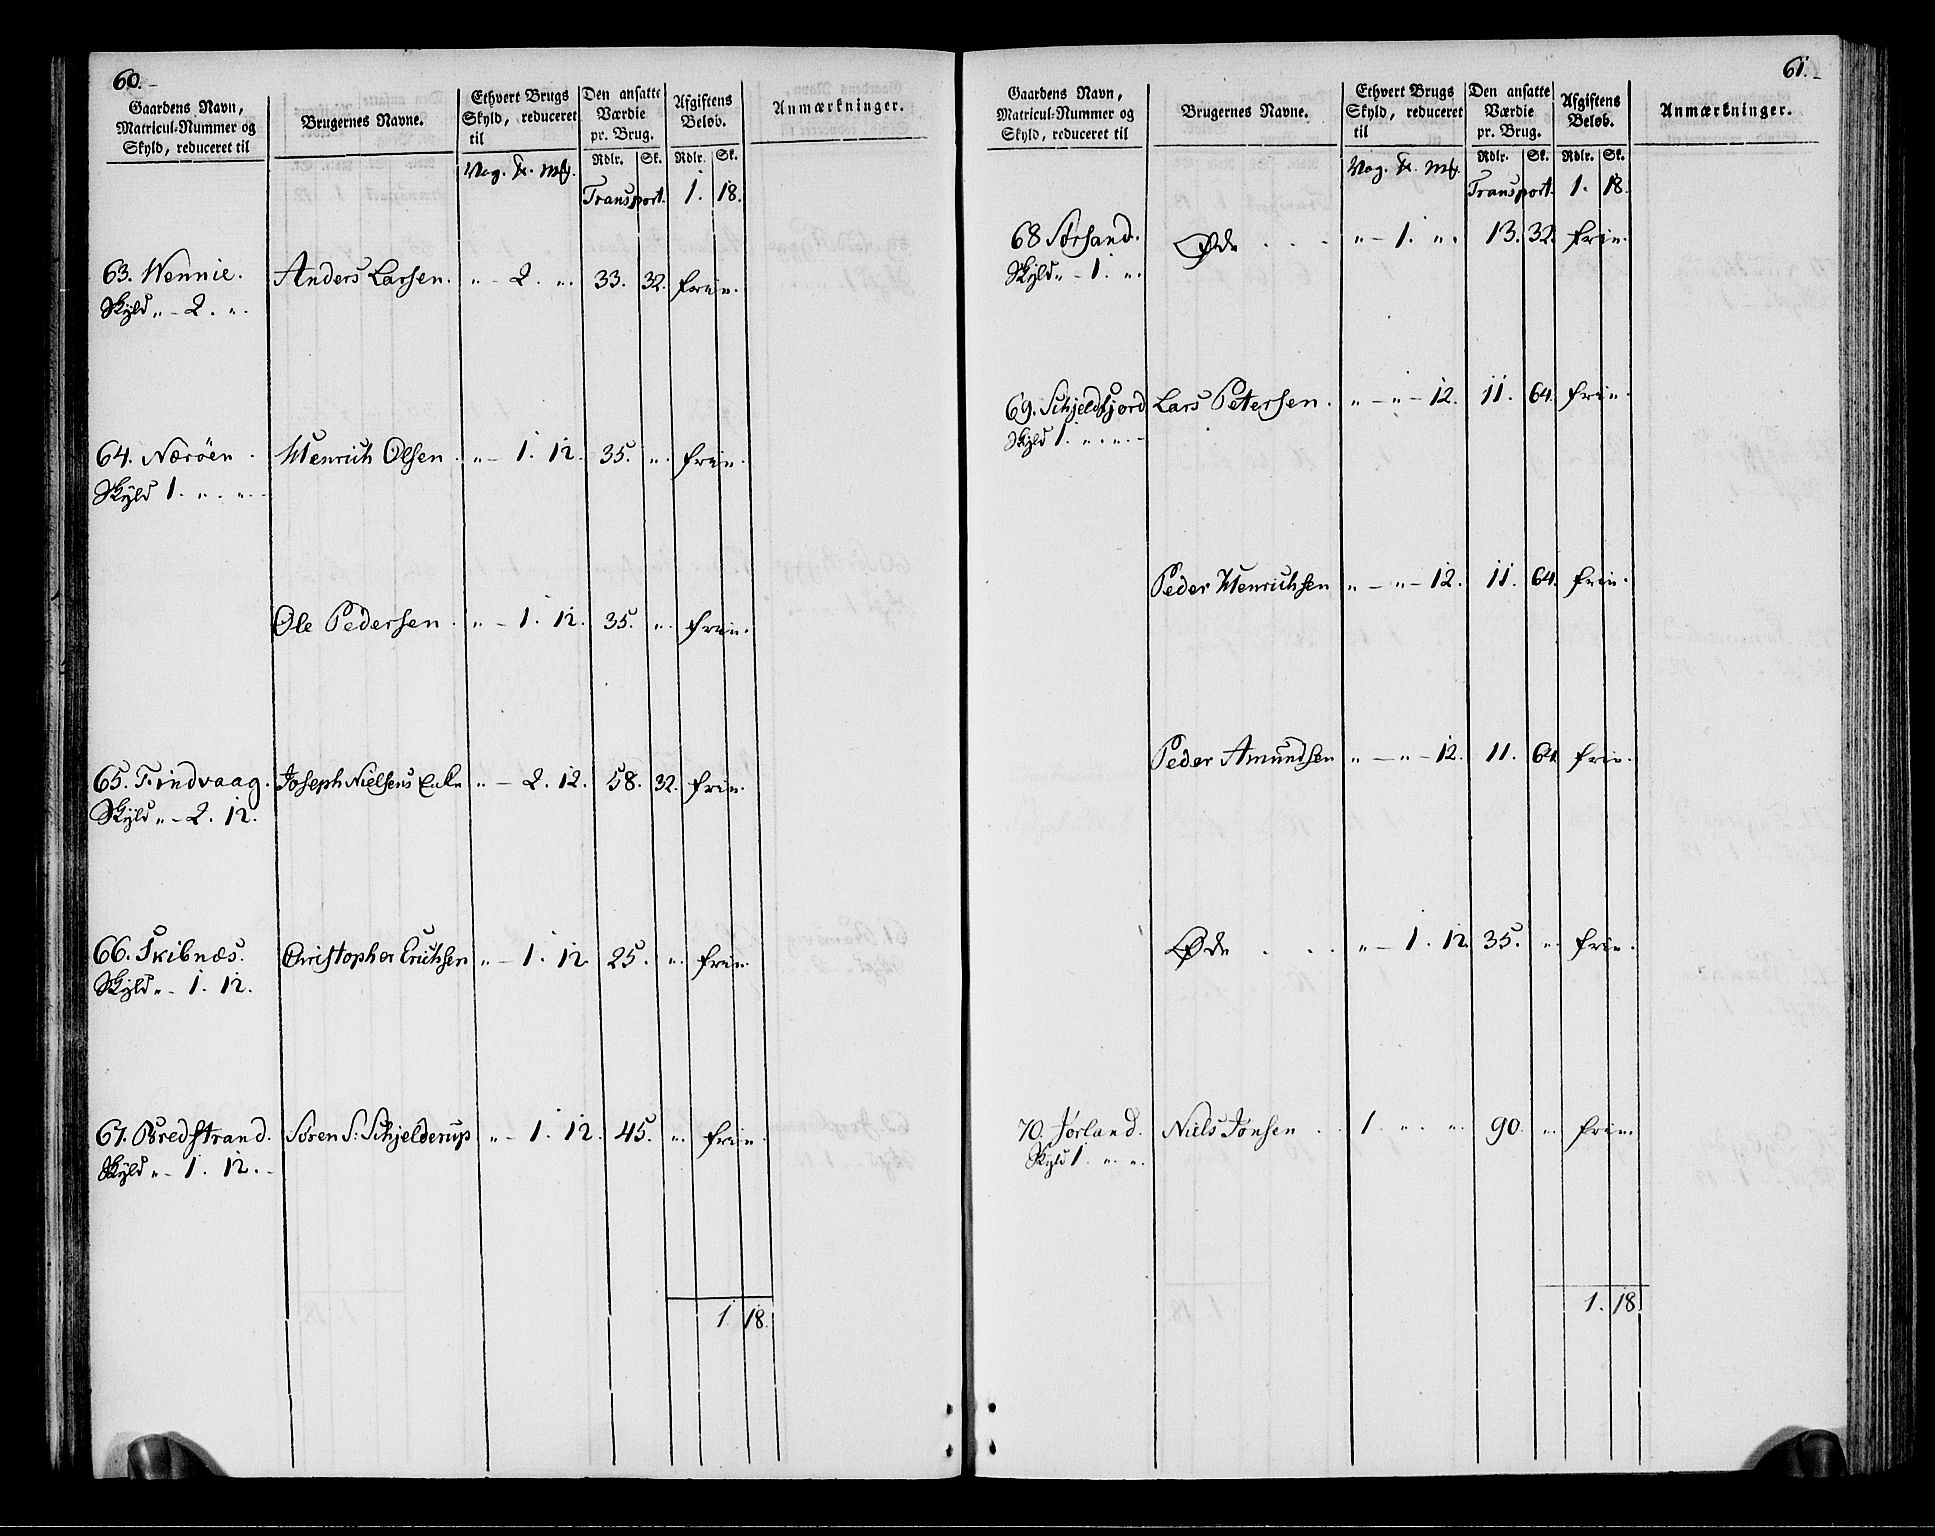 60.
Gaardens Navn, Matricul-Nummer og Skyld, reduceret til
Brugernes Navne.
Ethvert Brugs Skyld, reduceret til
Den ansatte Værdie pr. Brug.
Afgiftens Beløb.
Anmærkninger.
Rdlr. Sk. Rdlr. Sk.
Vog. Transport. 1. 18.
63. Wennie. Anders Larsen. „ - 2. „. 33. 32. frie.
Skyld „ - 2. „.
64. Næröen. Henrich Olsen. „ - 1. 12. 35. „. frie.
Skyld 1. „. „.
Ole Pedersen. „ - 1. 12. 35. „. frie.
65. Findvaag. Joseph Nielsens Enke „ - 2. 12. 58. 32. frie.
Skyld „ - 2. 12.
66. Skibnæs. Christopher Erichsen „ - 1. 12. 25. „. frie.
Skyld „ - 1. 12.
67. Bredstrand. Sören S: Schjelderup „ - 1. 12. 45. „. frie.
Skyld „ - 1. 12.
1. 18.
61.
Gaardens Navn, Matricul-Nummer og Skyld, reduceret til
Brugernes Navne.
Ethvert Brugs Skyld, reduceret til
Den ansatte Værdie pr. Brug.
Afgiftens Beløb.
Anmærkninger.
Rdlr. Sk. Rdlr. Sk.
Vog. Transport. 1. 18.
68 Sørsand. Øde . . . „ - 1. „. 13. 32. frie.
Skyld „ - 1. „.
69. Schjeldfjord Lars Petersen. „ - „ - 12. 11. 64. frie.
Skyld 1. „. „. -
Peder Henrichsen „ - „ - 12. 11. 64. frie.
Peder Amundsen „ - „ - 12. 11. 64. frie.
Øde . . . „ - 1. 12. 35. „. frie.
70. Jørland. Niels Jonsen . . 1. „. „. 90. „. frie.
Skyld 1. „. „.
1. 18.